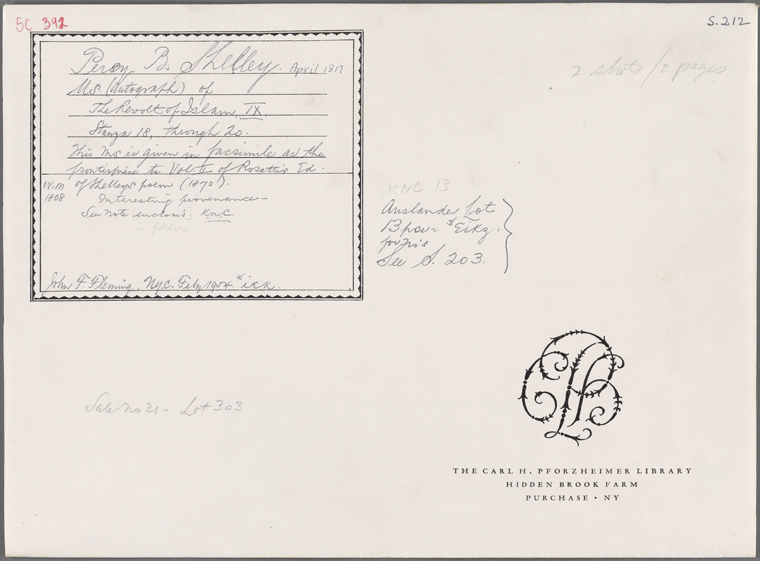 SC 392
S. 212
2 shots / 2 pages
Percy B. Shelley. April 1817
Ms. (Autograph) of
The Revolt of Islam, IX.
Stanza 18, through 20.
This Ms is given in facsimile as the
frontispiece to Vol I of Rosetti's Ed.
of Shelley's poem (1870).
IV.M
1808
Interesting provenance—
See note enclosed. KNC.
in folder
John F Fleming, NYC. Feby 1954. $ick.
KNC 13
Auslander Lot
13 pcs = $Eikg.
for No's
See S. 203.
Sale No 31 - Lot 303
THE CARL H. PFORZHEIMER LIBRARY
HIDDEN BROOK FARM
PURCHASE • NY